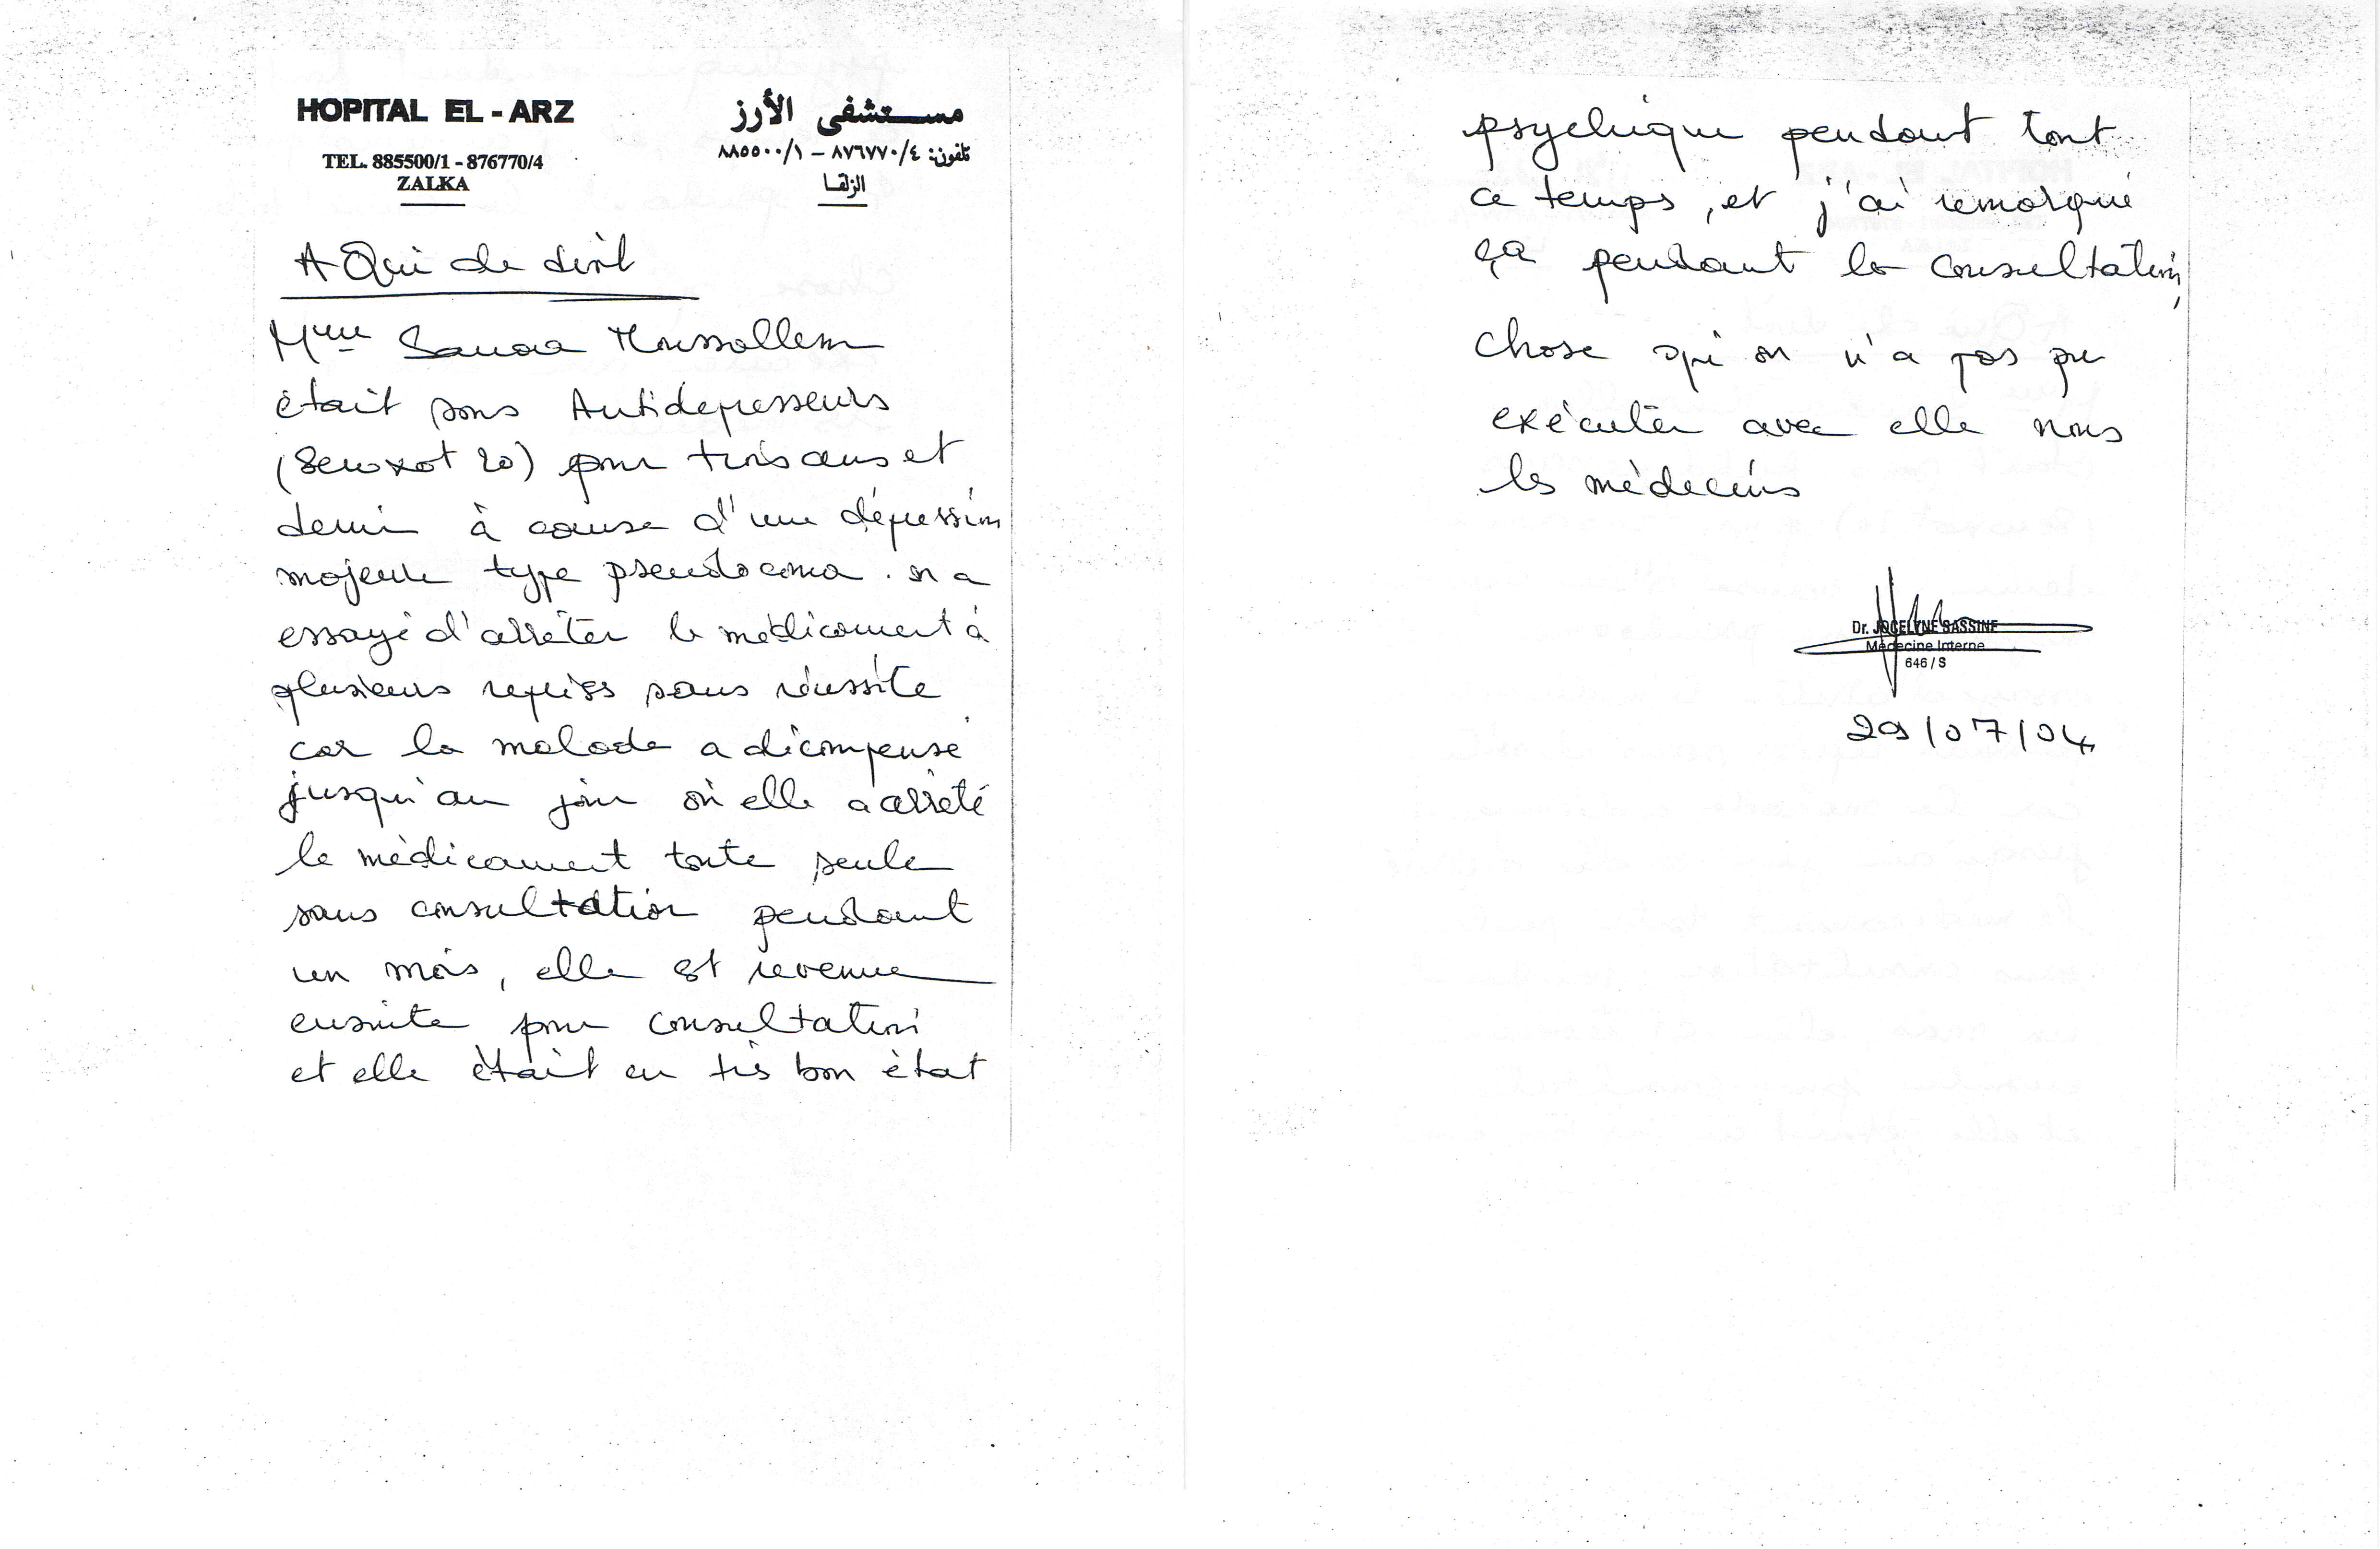 HOPITAL EL - ARZ
TEL. 885500/1 - 876770/4
ZALKA
مستشفى الأرز
تلفون: ٨٧٦٧٧٠/٤ – ٨٨٥٥٠٠/١
الزلقا
A Qui de droit
Mme Sanaa Moussallem
était sous Antidepresseurs
(Seroxat 20) pour trois ans et
demi à cause d'une dépression
majeure type pseudocoma. on a
essayé d'arrêter le médicament à
plusieurs reprises sans réussite
car la malade a décompensé
jusqu'au jour où elle a arrêté
le médicament toute seule
sans consultation pendant
un mois, elle est revenue
ensuite pour consultation
et elle était en très bon état
psychique pendant tout
ce temps, et j'ai remarqué
ça pendant la consultation,
chose qu'on n'a pas pu
exécuter avec elle nous
les médecins
Dr. JOCELYNE SASSINE
Médecine Interne
646 / S
29/07/04